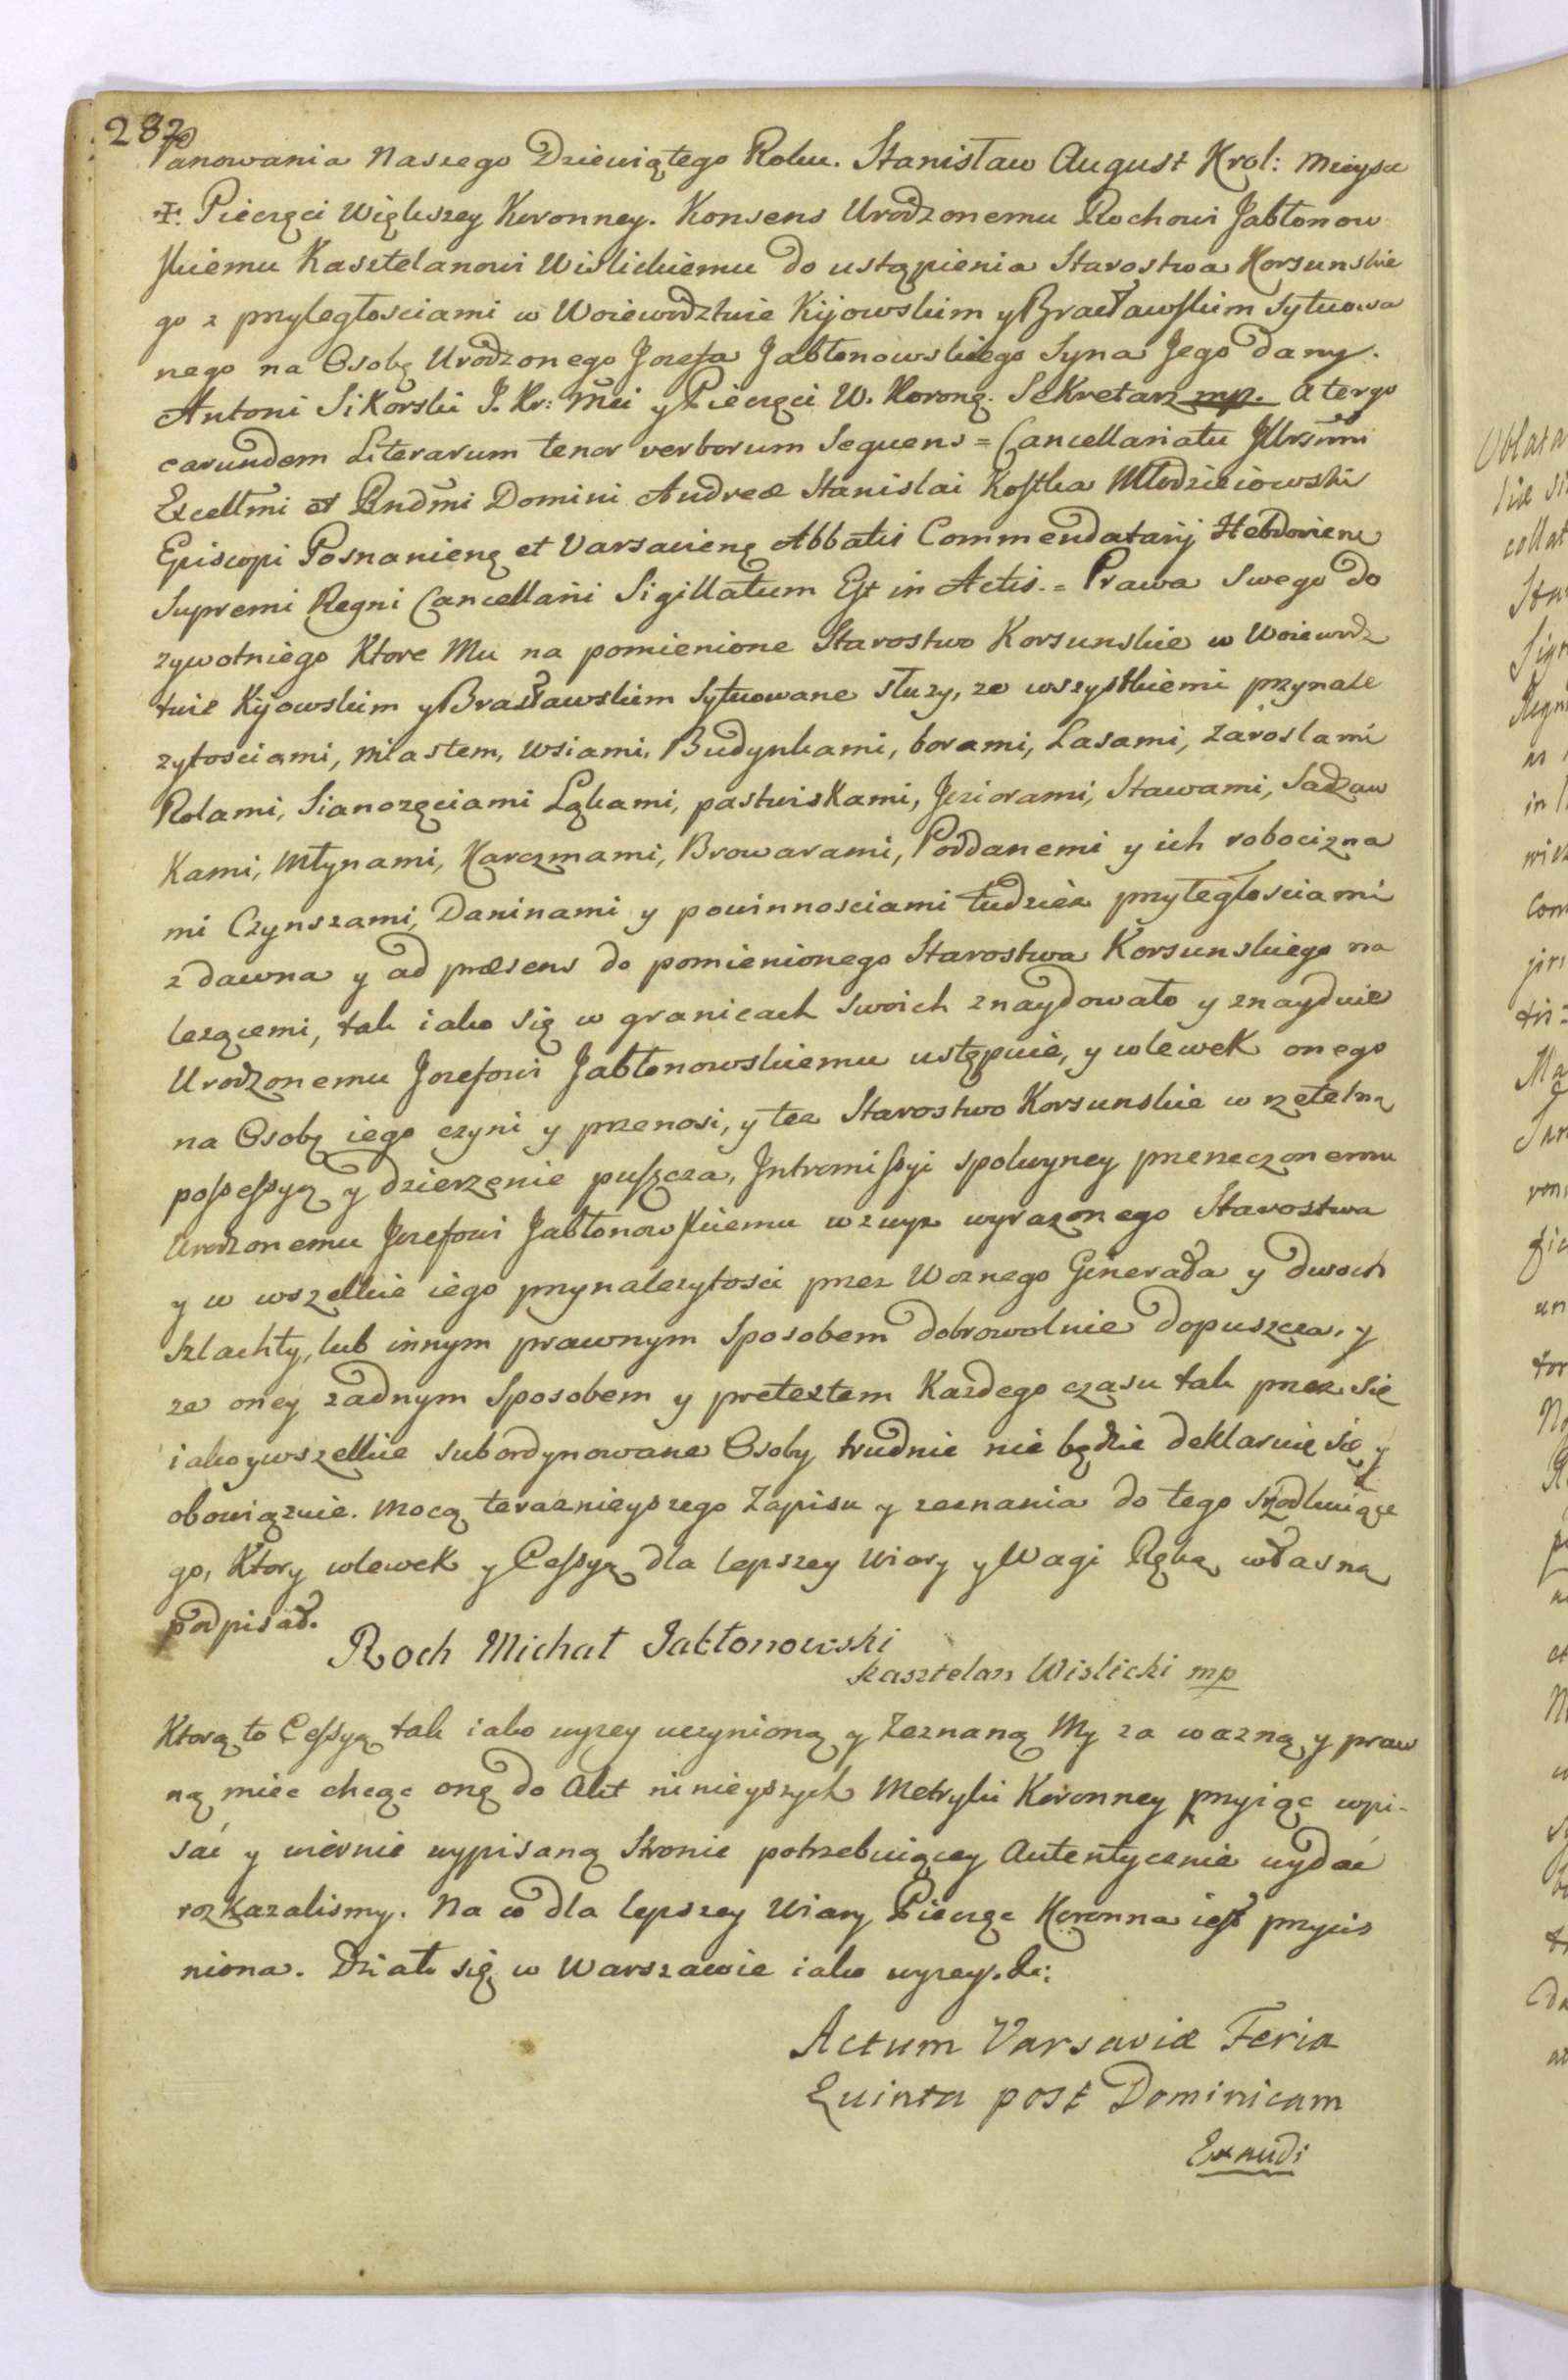 282
Panowania Naszego Dziewiątego Roku. Stanisław August Krol: Mieysce
Pieczęci Większey Koronney. Konsens Urodzonemu Rochowi Jabłonow
skiemu Kasztelanowi Wiślickiemu do ustąpienia Starostwa Korsunskie
go z przyległosciami w Woiewodztwie Kijowskim y Bracławskim Sytuowa
nego na Osobę Urodzonego Jozefa Jabłonowskiego Syna Jego dany.
Antoni Sikorski J. Kr: Mci y Pieczęci W. Koronę. Sekretarz mp. A tergo
earundem Literarum tenor verborum Sequens = Cancellariatu Jllrsmi
Excellmi et Rndmi Domini Andreæ Stanislai Kostka Młodzieiowski
Episcopi Posnanieng et Varsavieng Abbatis Commendatarij Hebdoviens
Supremi Regni Cancellarii Sigillatum Est in Actis. = Prawa Swego do
zywotniego Ktore Mu na pomienione Starostwo Korsunskie w Woiewodz
twie Kijowskim y Bracławskim Sytuowane słuzy, ze wszystkiemi przynale
zytościami, Miastem, Wsiami, Budynkami, borami, Lasami, Zaroslami
Rolami, Sianozęciami Łąkami, pastwiskami, Jeziorami, Stawami, Sadzaw
kami, Młynami, Karczmami, Browarami, Poddanemi y ich robocizna
mi Czynszami, Daninami y powinnosciami tudziez przyległościami
z dawna y ad præsens do pomienionego Starostwa Korsunskiego na
lezącemi, tak iako się w granicach swoich znaydowało y znayduie
Urodzonemu Jozefowi Jabłonowskiemu ustępuie, y wlewek onego
na Osobę iego czyni y przenosi, y tez Starostwo Korsunskie w rzetelną
possessyą y dzierzęnie puszcza, Intromissyi spokoyney przerzeczonemu
Urodzonemu Jozefowi Jabłonowskiemu wzwyz wyrazonego Starostwa
y w wszelkie iego przynalezytosci przez Woznego Generała y dwoch
Szlachty, lub innym prawnym Sposobem dobrowolnie dopuszcza, y
ze oney zadnym Sposobem y pretextem Kazdego czasu tak przez się
iako y wszelkie subordynowane Osoby trudnic nie będzie deklaruię się y
obowiązuie. Mocą teraznieyszego Zapisu y zeznania do tego
go, Ktory wlewek y Cessyą dla lepszey Wiary y Wagi Ręką własną
podpisał.
Roch Michał Jabłonowski
Kasztelan Wislicki mp
Ktorą to Cessyą tak iako wyzey uczynioną y Zeznaną My za wazną y praw
ną miec chcąc onę do Akt ninieyszych Metryki Koronney przyiąc wpi-
sać y wiernie wypisaną Stronie potrzebuiącey Autentycznie wydać
rozkazalismy. Na co dla lepszey Wiary Pieczęc Koronna iest przycis
niona. Działo się w Warszawie iako wyzey. &:
Actum Varsaviæ Feria
Quinta post Dominicam
Exaudi